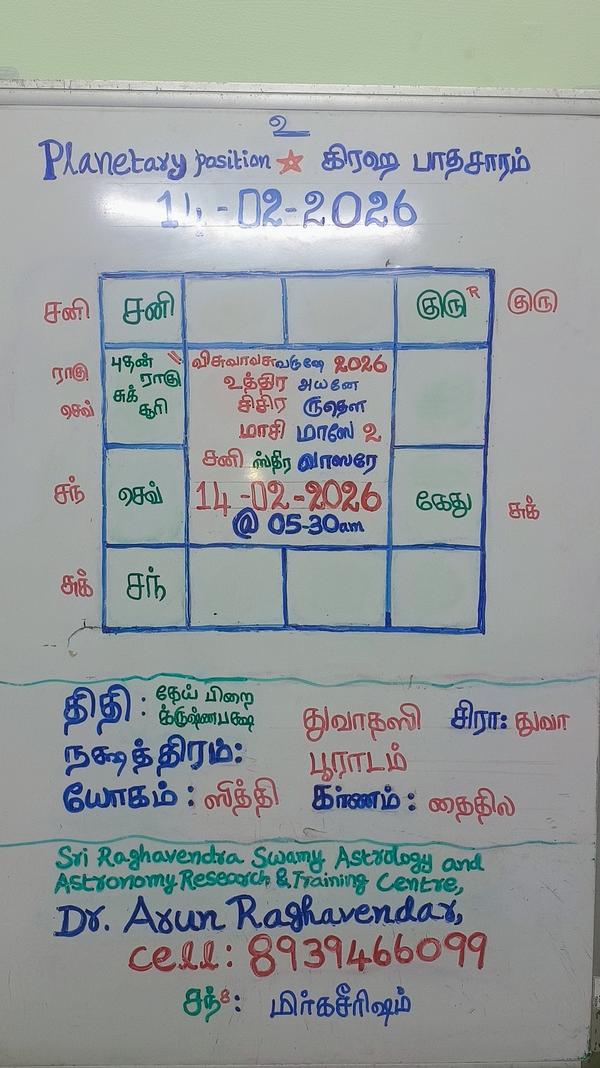 உ
Planetary position ☆ கிரஹ பாதசாரம்
14-02-2026
சனி சனி குரு R குரு
ராகு புதன் ராகு
செவ் சுக் சூரி
விசுவாவசுவருஷே 2026
உத்திர அயனே
சிசிர ருதௌ
மாசி மாஸே 2
சனி ஸ்திர வாஸரே
சந் செவ் 14-02-2026 கேது சுக்
@ 05-30am
சுக் சந்
திதி: தேய் பிறை
க்ருஷ்ணபக்ஷ துவாதஸி சிரா: துவா
நக்ஷத்திரம்: பூராடம்
யோகம்: ஸித்தி கர்ணம்: தைதில
Sri Raghavendra Swamy Astrology and
Astronomy Research & Training Centre,
Dr. Arun Raghavendar,
cell: 8939466099
சந்8: மிர்கசீரிஷம்